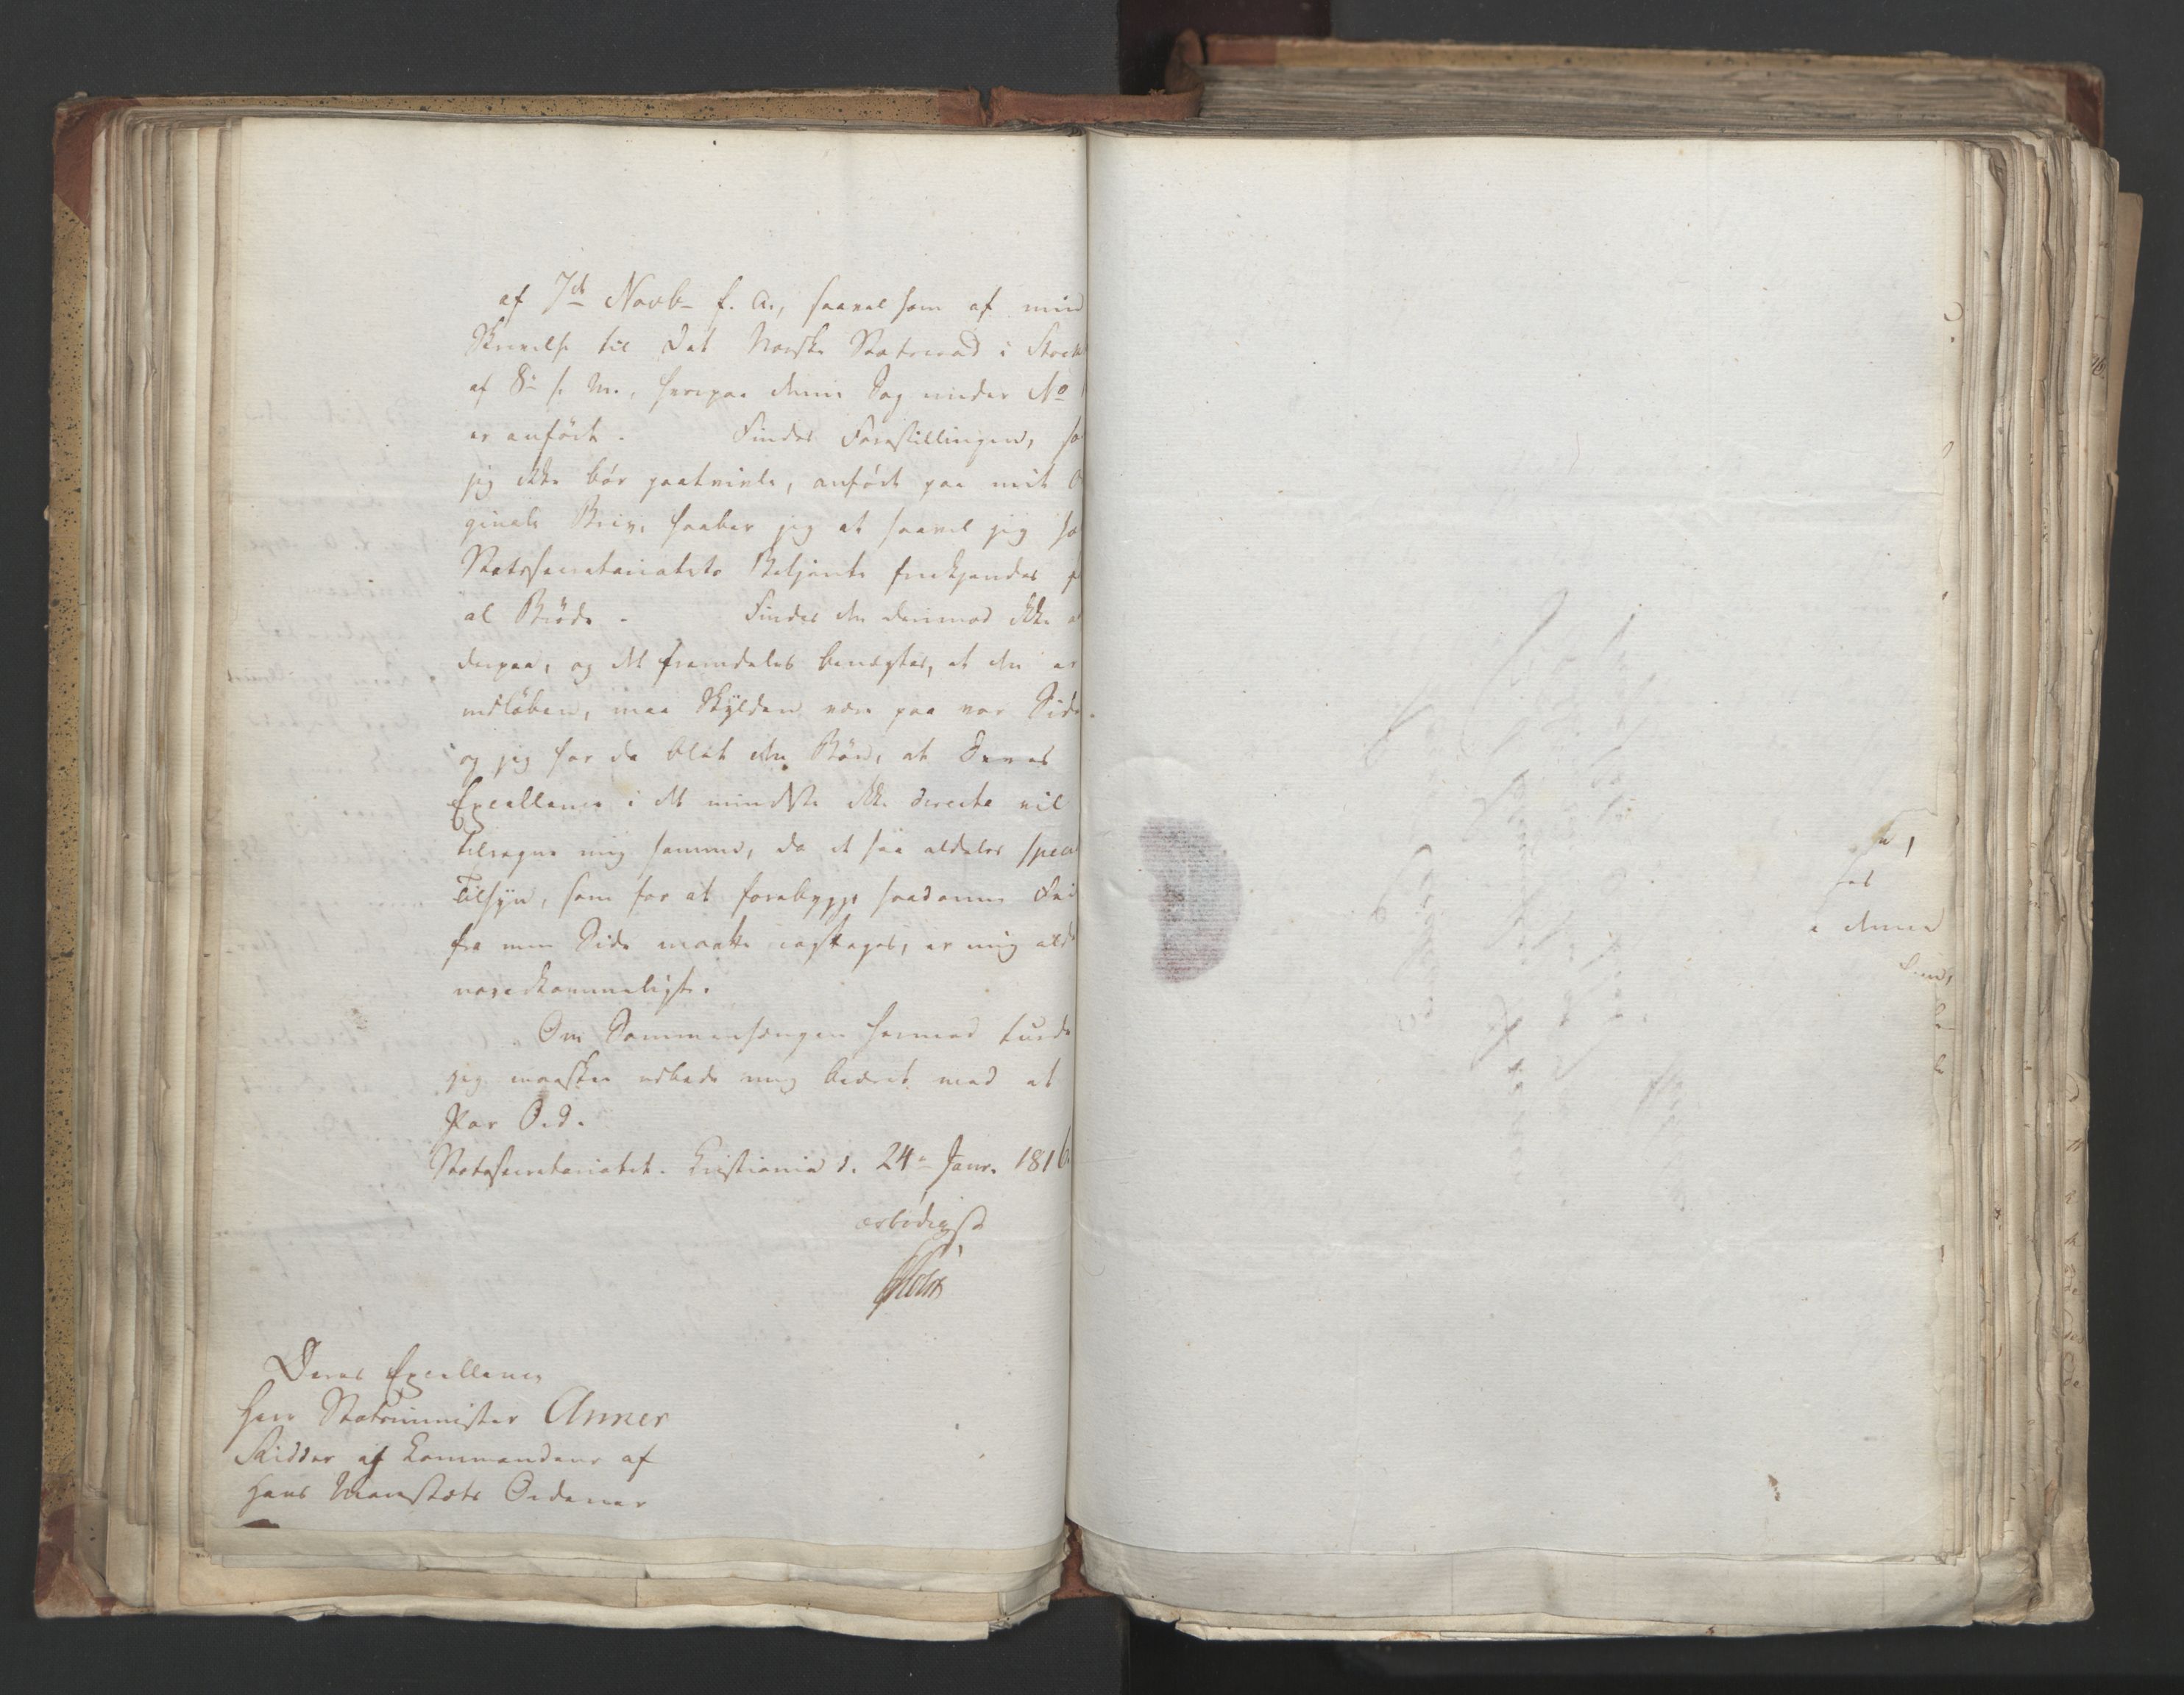 af 7de Novb f. A., saavel som af min
Skrivelse til Det Norske Statsraad i Stock
af 8de s. M., hvorpaa denne Sag under No
er anført. Findes Forestillingen, so
jeg ikke bør paatvivle, anført paa mit O
ginale Brev, haaber jeg at saavel jeg so
Statssecretariatets Betjente frikjendes f
al Brøde. Findes den derimod ikke a
derpaa, og det fremdeles benægtes, at den er
indløben, maa Skylden være paa vor Side
og jeg har da blot den Bøn, at Deres
Excellence i det mindste ikke directe vil
tilregne mig samme, da et saa aldeles speci
Tilsyn, som for at forebygge saadanne Fei
fra min Side maatte iagttages, er mig alde
uoverkommeligt.
Om Sammenhængen hermed turde
jeg maaskee udbede mig beæret med et
Par Ord.
Statssecretariatet. Christiania d. 24de Janr. 1816
ærbødigst
Holst
Deres Excellence
Herr Statsminister Anker
Ridder af Commandeur af
Hans Majestæts Ordener
a denne